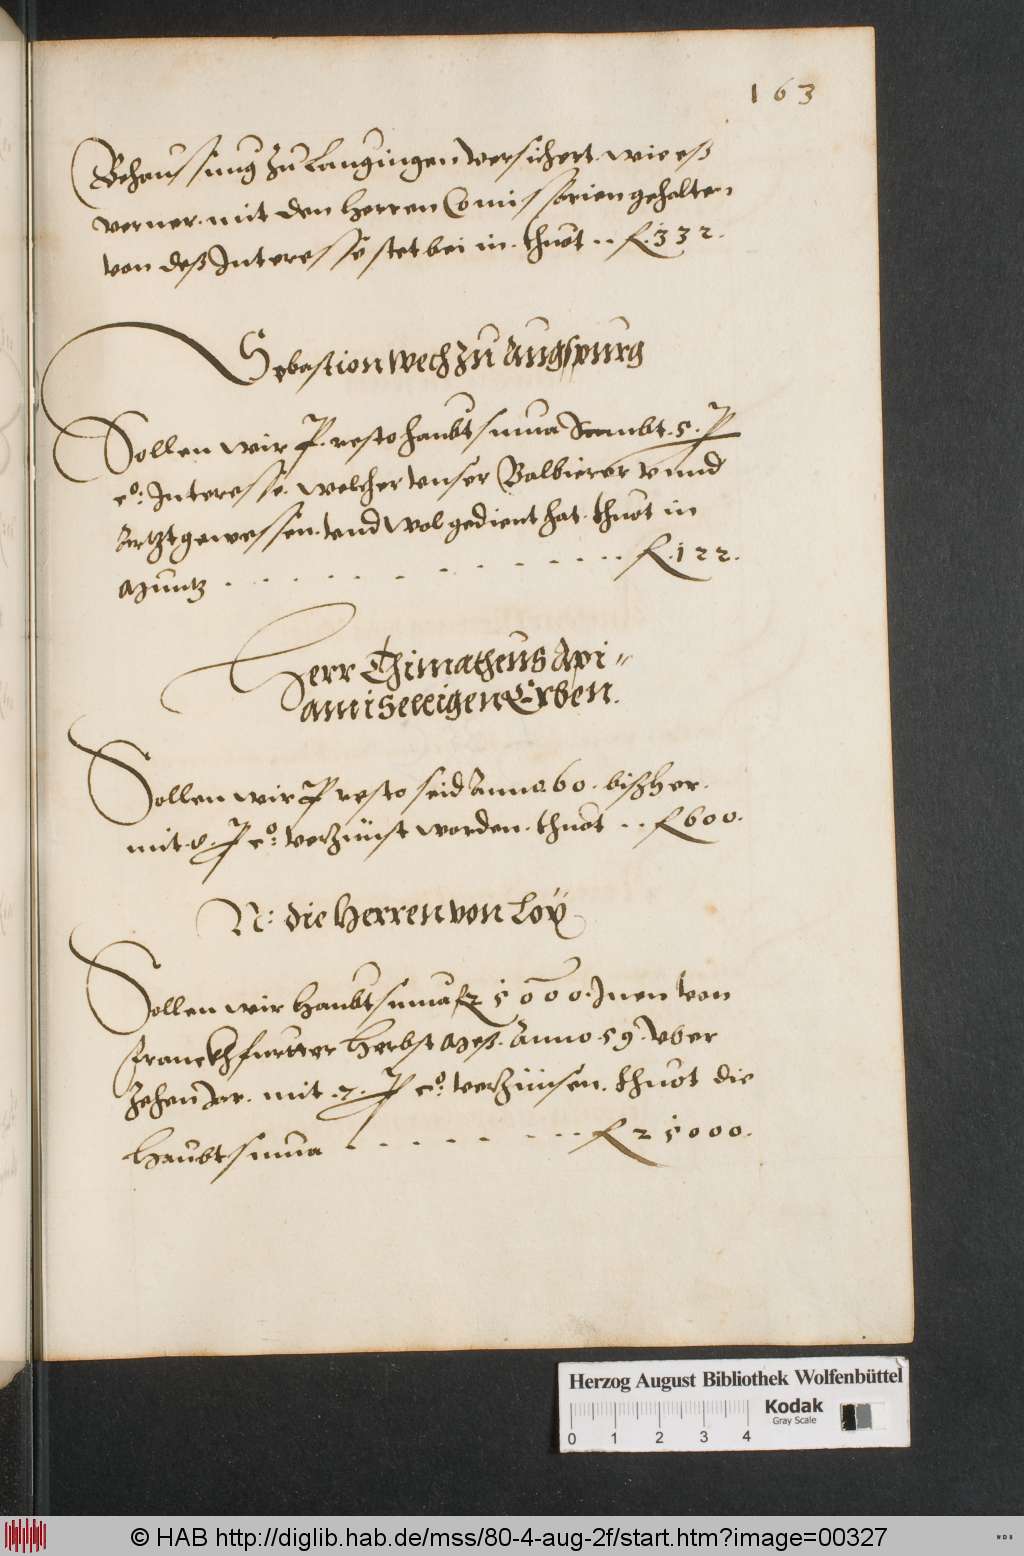 163
Behaussung zu Laugingen versichert. wie eß
verner. mit den Herren Comissarien gehalten
von deß Interesse stet bei in. thuot .. f. 332.
Sebastion Wech zu Augspurg
Sollen wir P. resto haubt suma Sambt. 5. P
co: Interesse. welcher unser Balbierer vnnd
Artzt gewessen. vnd wol gedient hat. thuot in
Muntz . . . . . . . . . . . f. 122.
Herr Thimatheus Api-
ami Selligen Erben.
Sollen wir P resto seid Anno. 60. bißher.
mit P co: verzinst worden. thuot .. f 600.
N: die Herren von Loÿ
Sollen wir haubt suma f 25000. Inen von
Franckhfurtter Herbst Meß. Anno. 59. vber
zehen Jar. mit . P co: verzünsen. thuot die
Haubt suma . . . . . . . . f 25000.
Herzog August Bibliothek Wolfenbüttel
Kodak
Gray Scale
0 1 2 3 4
© HAB http://diglib.hab.de/mss/80-4-aug-2f/start.htm?image=00327